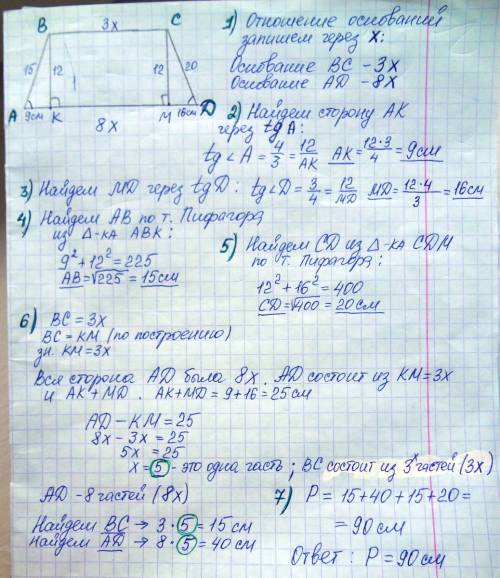 B 3x C
1) Отношение оснований
запишем через x:
Основание BC – 3x
Основание AD – 8x
15 12 12 20
A 9см K M 16см D
8x
2) Найдем сторону AK
через tg A:
tg∠A = 4/3 = 12/AK AK = 12·3/4 = 9см
3) Найдем MD через tgD: tg∠D = 3/4 = 12/MD MD = 12·4/3 = 16см
4) Найдем AB по т. Пифагора
из Δ-ка ABK:
9² + 12² = 225
AB = √225 = 15см
5) Найдем CD из Δ-ка CDM
по т. Пифагора:
12² + 16² = 400
CD = √400 = 20см
6) BC = 3x
BC = KM (по построению)
зн. KM = 3x
Вся сторона AD была 8x. AD состоит из KM = 3x
и AK + MD. AK + MD = 9 + 16 = 25см
AD – KM = 25
8x – 3x = 25
5x = 25
x = 5 – это одна часть; BC состоит из 3ˣ частей (3x)
AD – 8 частей (8x)
Найдем BC → 3 · 5 = 15см
Найдем AD → 8 · 5 = 40см
7) P = 15 + 40 + 15 + 20 =
= 90см
Ответ: P = 90см